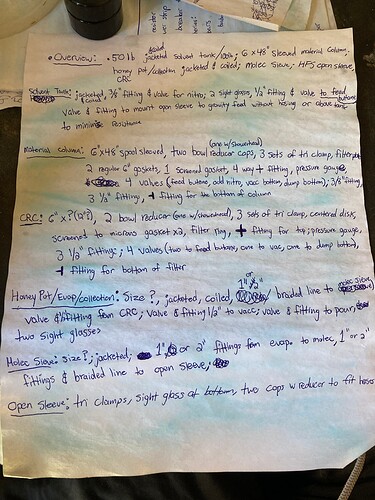 • Overview: .50 lb coiled jacketed Solvent tank/coils; 6 x 48" sleeved material column,
honey Pot/collection jacketed & coiled; Molec Sieve; open sleeve
Solvent Tank: jacketed, coiled, 3/8" fitting & valve for nitro; 2 sight glass, 1/2" fitting & valve to feed butane,
valve & fitting to mount open sleeve to gravity feed without having or above
to minimize Resistance
Material column: 6"x48" spool sleeved, two bowl reducer caps (one w/showerhead), 3 sets of tri clamp, filterplate
2 regular 6" gaskets, 1 screened gasket, 4 way + fitting, pressure gauge,
4 valves (feed butane, add nitro, vacc bottom, dump bottom); 3/8" fitting,
3 1/2" fittings, + fitting for the bottom of column
CRC: 6" x ? (12"?), 2 bowl reducer (one w/showerhead), 3 sets of tri clamp, centered disk,
screened to microns gasket x2, filter ring, + fitting for top, pressure gauge,
3 1/2" fittings; 4 valves (two to feed butane, one to vacc, one to dump bottom),
+ fitting for bottom of filter
Honey Pot/Evap/collection: Size ?, jacketed, coiled, 1" or 2" braided line to molec sieve,
valve & fitting from CRC; valve & fitting 1/2" to vacc; valve & fitting to pour,
two sight glasses
Molec Sieve: size?; jacketed; 1" or 2" fittings from evap. to molec, 1" or 2"
fittings & braided line to open sleeve;
Open Sleeve: tri clamps, sight glass at bottom, two caps w reducer to fit hoses